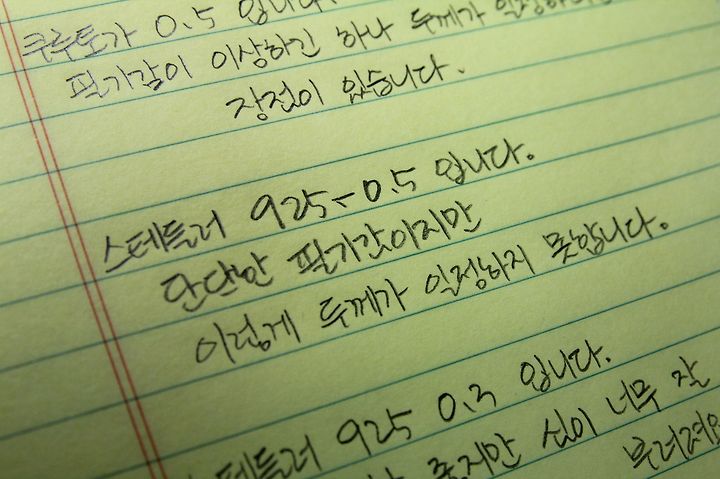 쿠루토가 0.5 입니다.
필기감이 이상하긴 하나 두께가 일정하다는
장점이 있습니다.
스테들러 925-0.5 입니다.
단단한 필기감이지만
이렇게 두께가 일정하지 못합니다.
스테들러 925 0.3 입니다.
좋지만 심이 너무 잘
부러져요